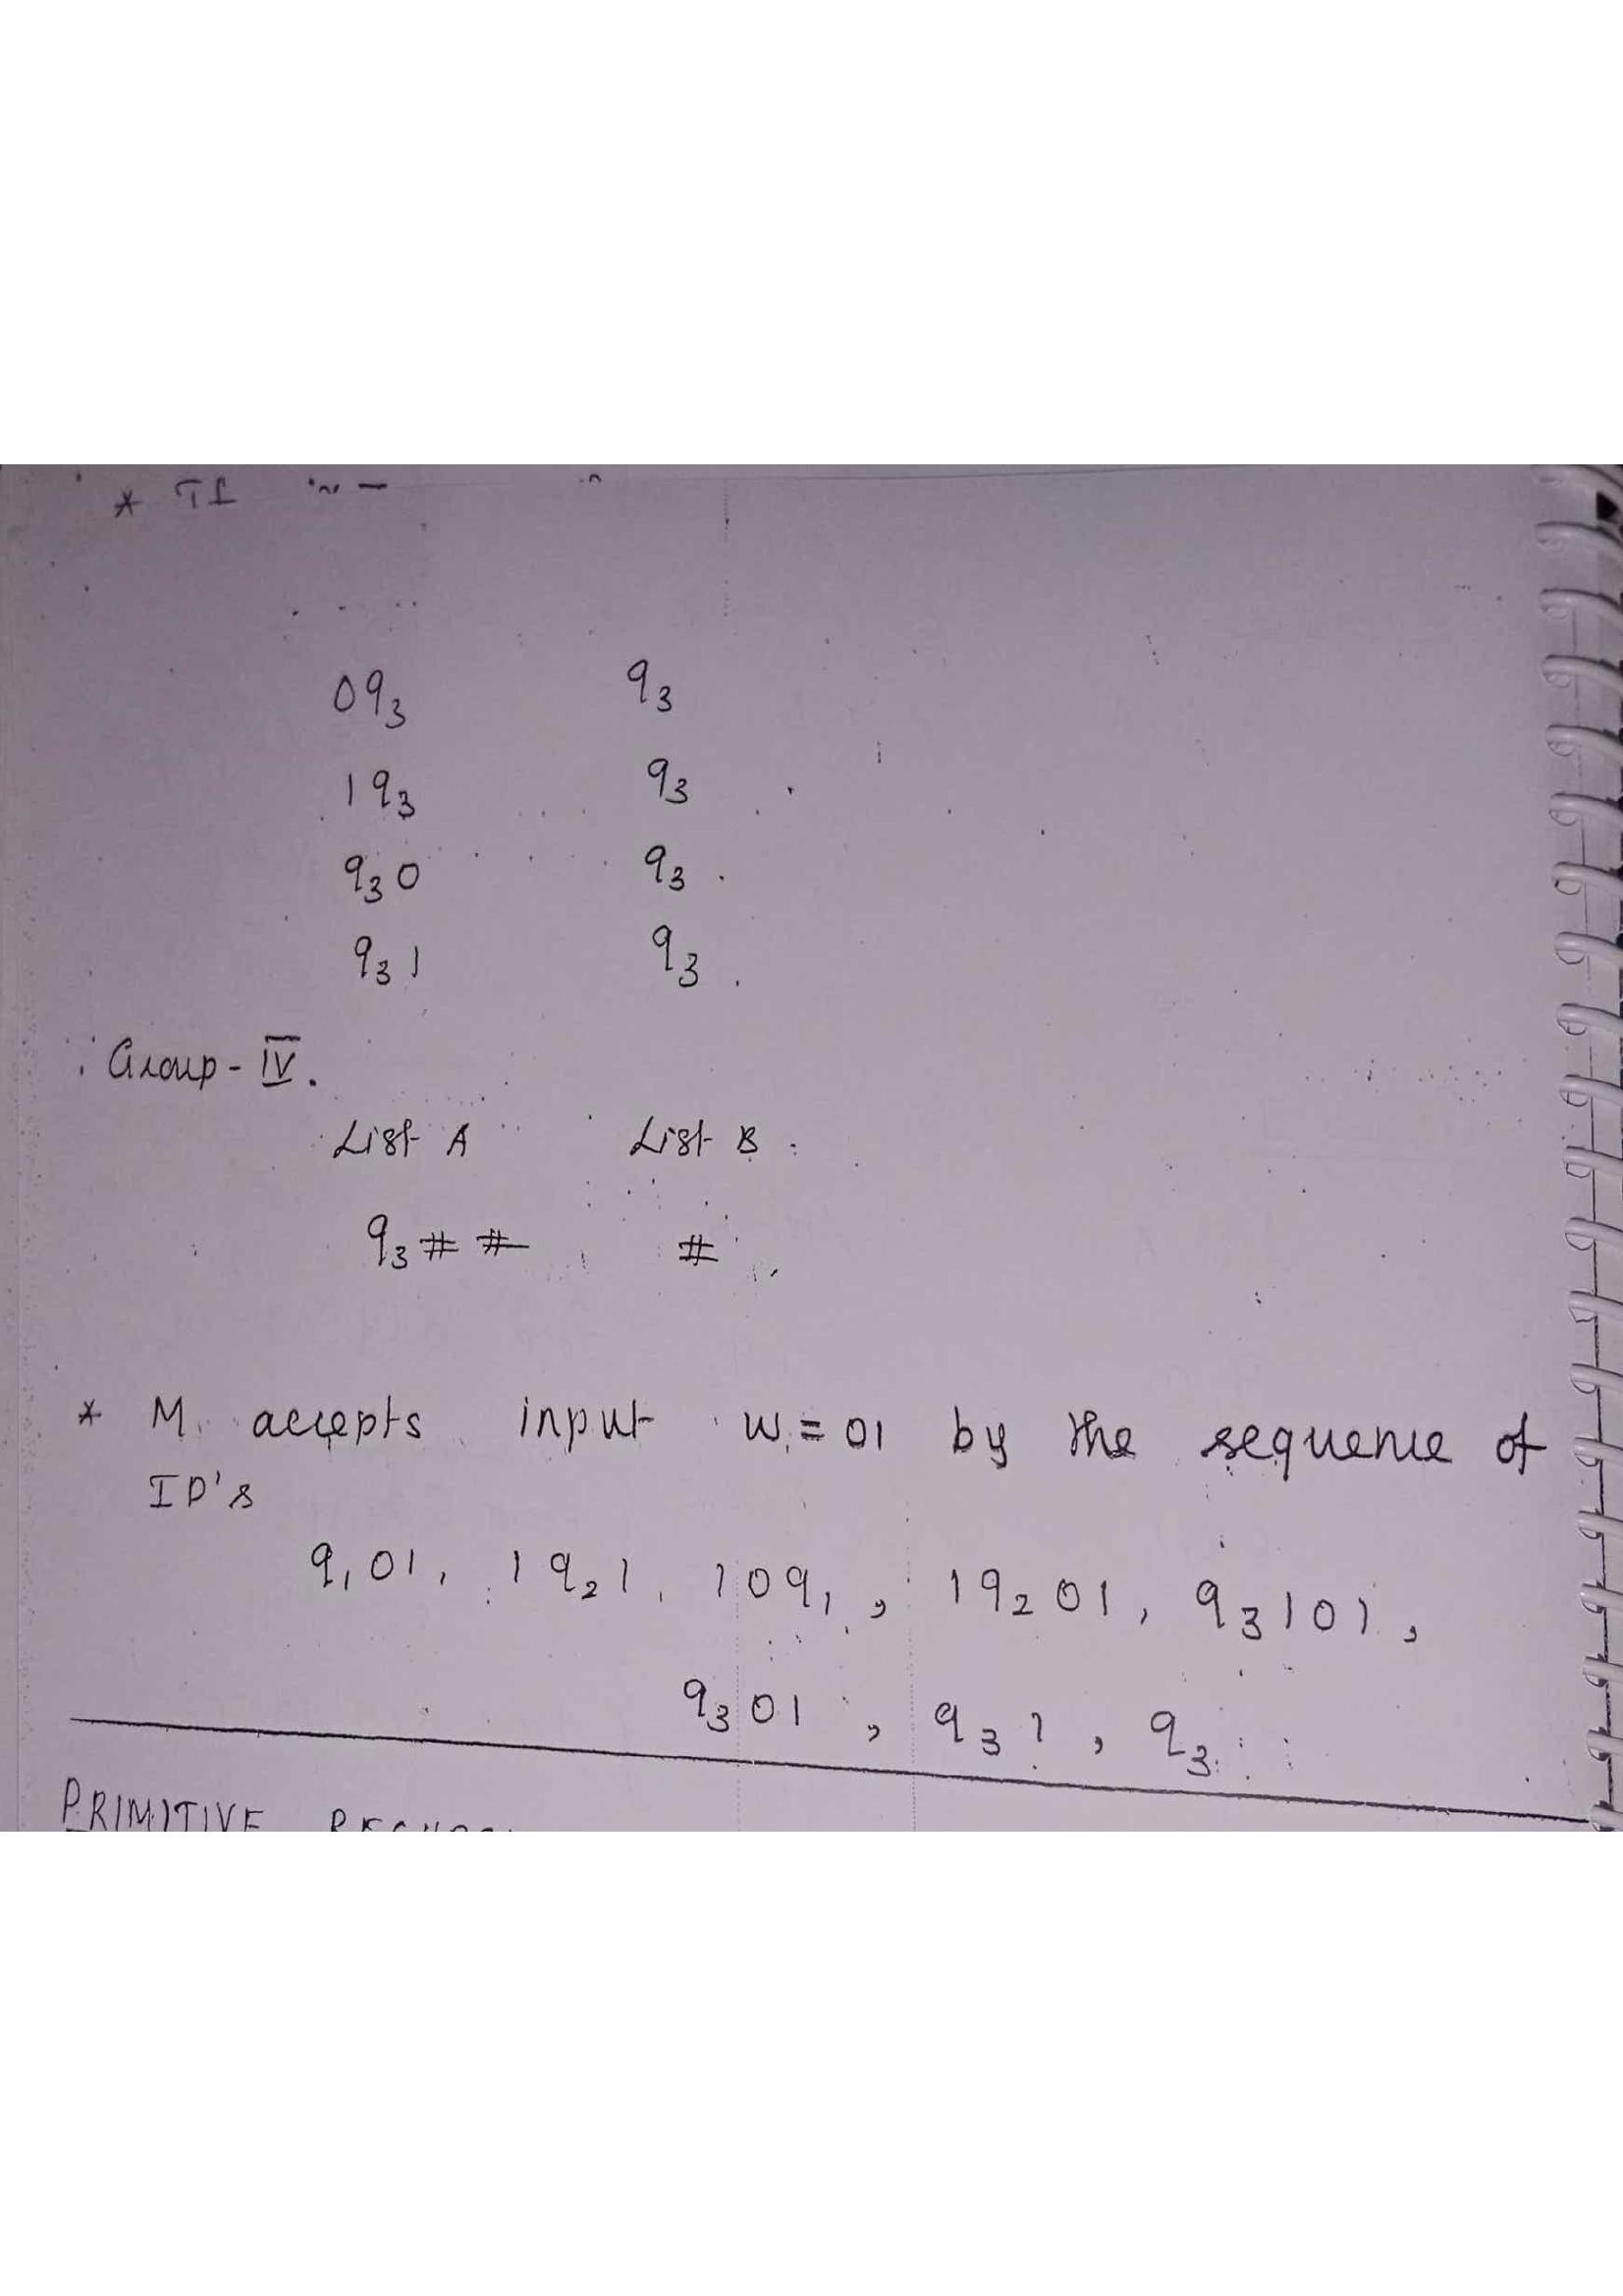 0q₃ q₃
1q₃ q₃
q₃0 q₃
q₃1 q₃
Group - IV.
List A List B
q₃## #
* M accepts input w = 01 by the sequence of
ID's
q₁01, 1q₂1, 10q₁, 1q₂01, q₃101,
q₃01, q₃1, q₃
PRIMITIVE